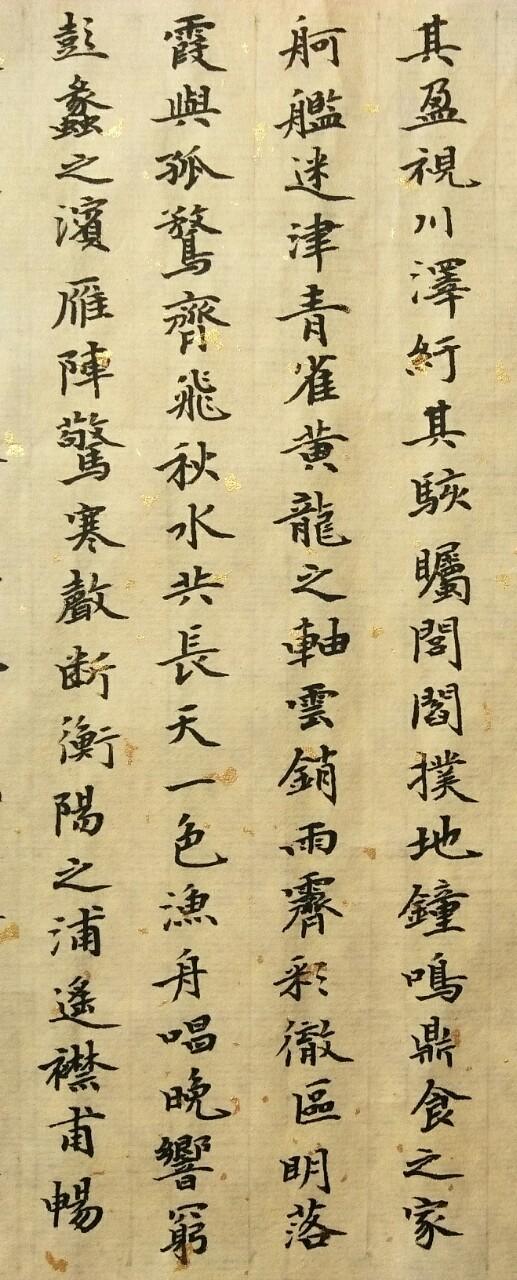 其盈視川澤紆其駭矚閭閻撲地鐘鳴鼎食之家
舸艦迷津青雀黃龍之軸雲銷雨霽彩徹區明落
霞與孤鶩齊飛秋水共長天一色漁舟唱晚響窮
彭蠡之濱雁陣驚寒聲断衡陽之浦遙襟甫暢